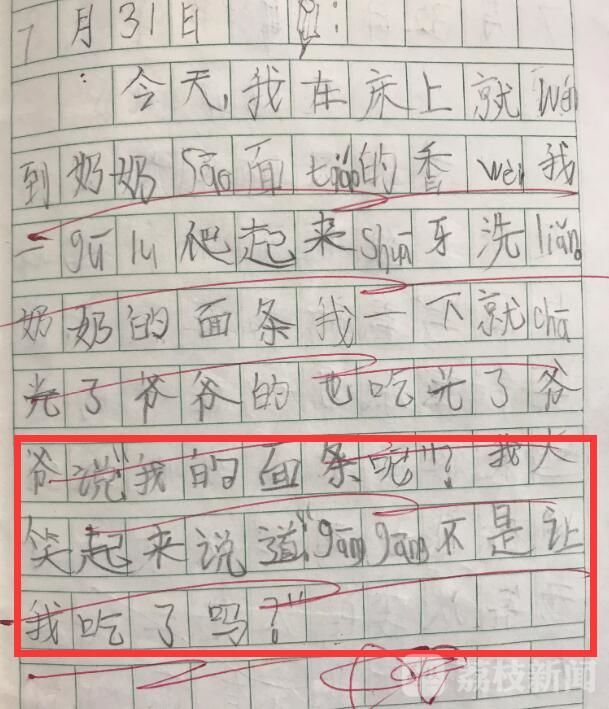 7月31日
今天,我在床上就wén
到奶奶Sāo面tiáo的香wèi我
一gūlu爬起来Shuā牙洗liǎn
奶奶的面条我一下就chā
光了爷爷的也吃光了爷
爷说"我的面条呢"?我大
笑起来说道"gāng gāng不是让
我吃了吗?"
荔枝新闻